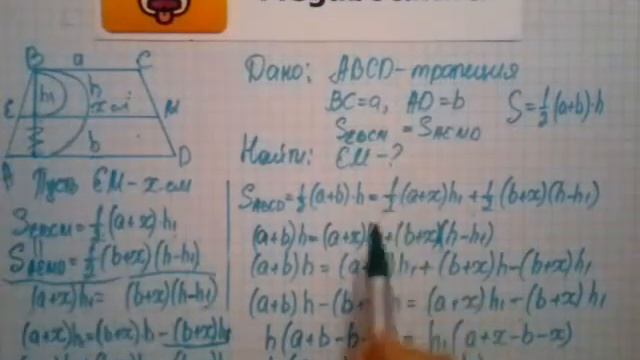 B a C
h
h₁ x см
E M
b
A D
Пусть EM - x см
S_EBCM = ½(a+x)·h₁
S_AEMD = ½(b+x)(h-h₁)
(a+x)h₁ = (b+x)(h-h₁)
(a+x)h₁ = (b+x)h - (b+x)h₁
Дано: ABCD - трапеция
BC=a, AD=b S=½(a+b)·h
S_EBCM = S_AEMD
Найти: EM - ?
S_ABCD = ½(a+b)·h = ½(a+x)h₁ + ½(b+x)(h-h₁)
(a+b)h = (a+x) +(b+x)(h-h₁)
(a+b)h = h₁ + (b+x)h - (b+x)h₁
(a+b)h - = (a+x)h₁ - (b+x)h₁
h(a+b-b = h₁(a+x-b-x)